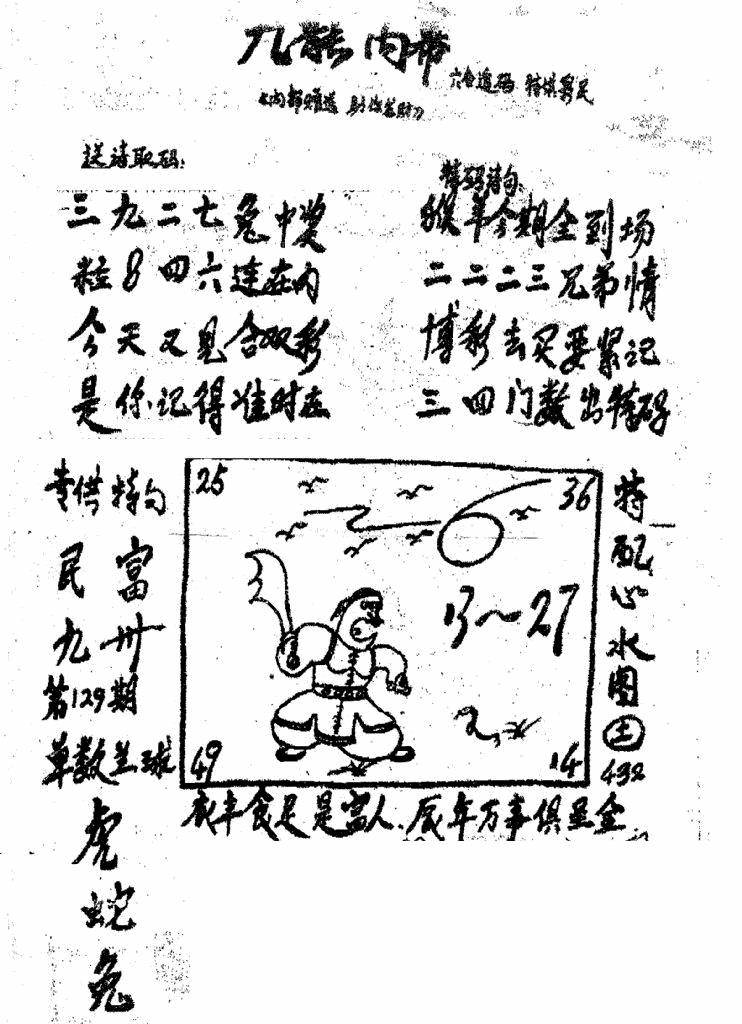 九龍内幕
六合透码 特供彩民
送诗取码:
特码诗句:
三九二七兔中奖
粒8四六连在内
今天又见合双彩
是你记得准时在
猴羊今期全到场
二二二三兄弟情
博彩去买要紧记
三四门数出特码
专供特句
民富
九卅
第129期
单数兰球
虎
蛇
兔
25
36
13~27
49
14
特配心水图
土
432
衣丰食足是富人.辰年万事俱呈金